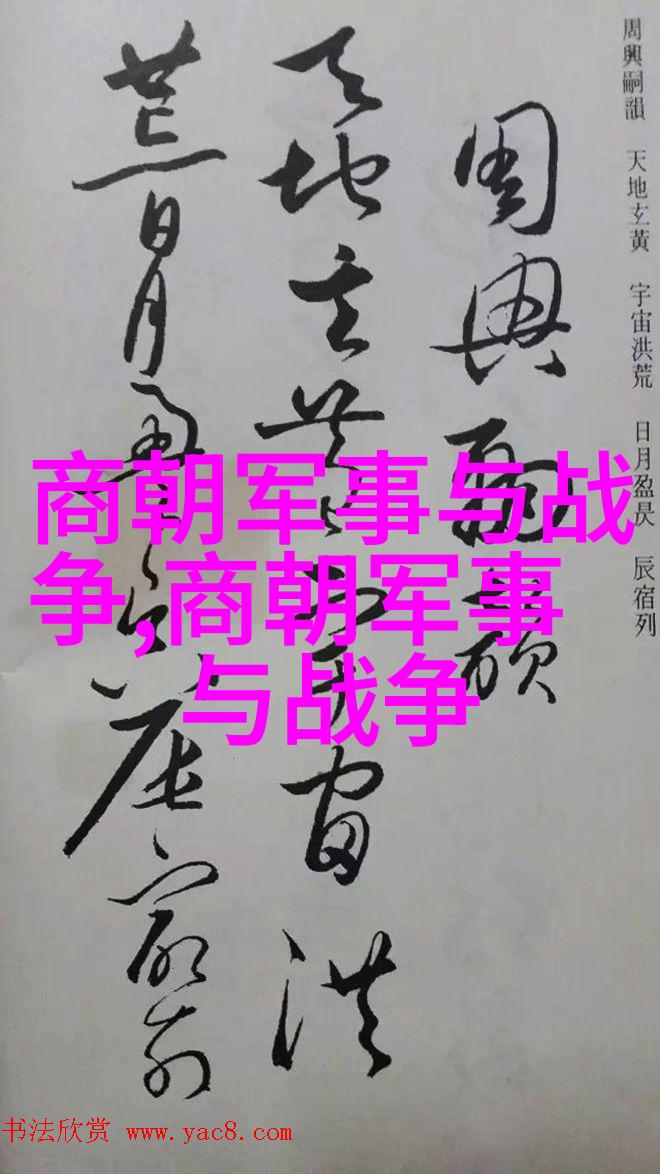 周興嗣韻 天地玄黃 宇宙洪荒 日月盈昃 辰宿列
周興嗣韻
天地玄黃宇宙洪
荒日月盈昃辰宿列
商朝军事与战
争,商朝军事
与战争
书法欣赏 www.yac8.com